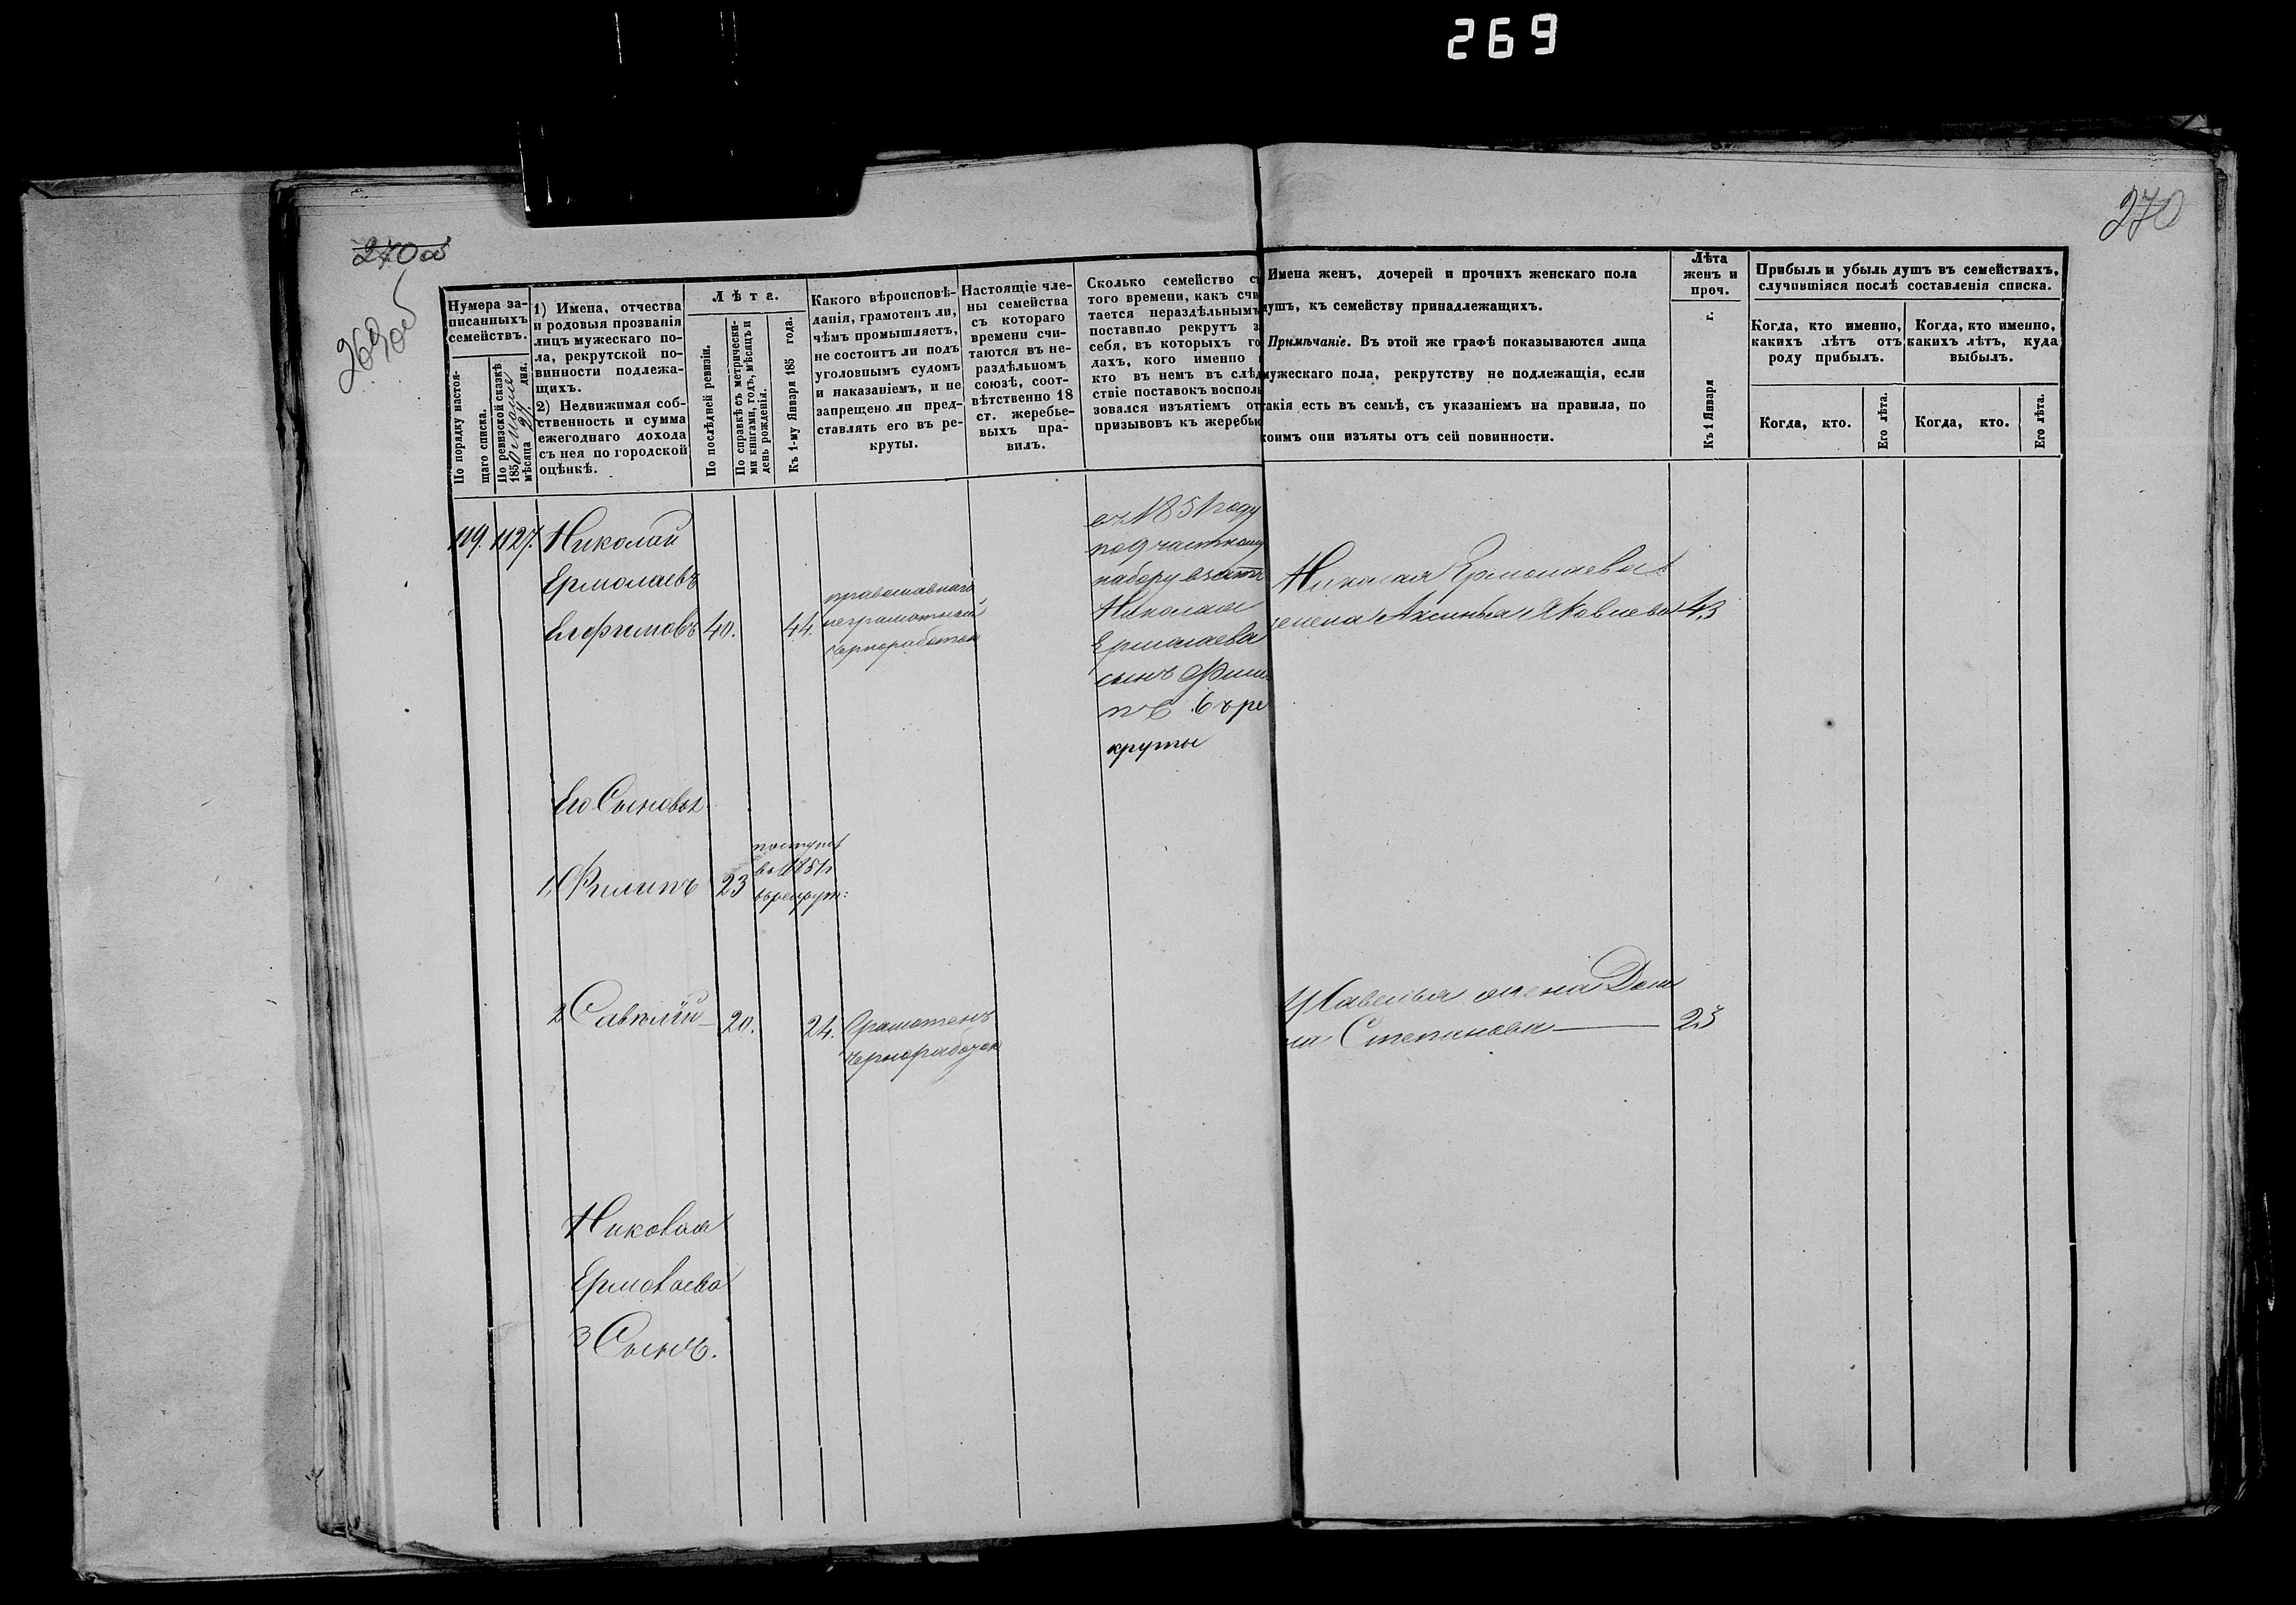 269
270
270 об
269 об
Нумера за-
писанныхъ
семействъ.
По порядку настоя-
щаго списка.
По ревизской сказкѣ
1850
мѣсяца 24 дня.
1) Имена, отчества
и родовыя прозванія
лицъ мужескаго по-
ла, рекрутской по-
винности подлежа-
щихъ.
2) Недвижимая соб-
ственность и сумма
ежегоднаго дохода
съ нея по городской
оцѣнкѣ.
Лѣта.
По послѣдней ревизіи.
По справкѣ съ метрически-
ми книгами, годъ, мѣсяцъ и
день рожденія.
Къ 1-му Января 185 года.
Какого вѣроисповѣ-
данія, грамотенъ ли,
чѣмъ промышляетъ,
не состоитъ ли подъ
уголовнымъ судомъ
и наказаніемъ, и не
запрещено ли пред-
ставлять его въ ре-
круты.
Настоящіе чле-
ны семейства
съ котораго
времени счи-
таются въ не-
раздѣльномъ
союзѣ, соот-
вѣтственно 18
ст. жеребье-
выхъ пра-
вилъ.
Сколько семейство съ
того времени, какъ счи
тается нераздѣльнымъ
поставило рекрутъ з
себя, въ которыхъ го
дахъ, кого именно
кто въ немъ въ слѣд
ствіе поставокъ воспол
зовался изъятіемъ от
призывовъ къ жеребью
Имена женъ, дочерей и прочихъ женскаго пола
душъ, къ семейству принадлежащихъ.
Примѣчаніе. Въ этой же графѣ показываются лица
мужескаго пола, рекрутству не подлежащія, если
такія есть въ семьѣ, съ указаніемъ на правила, по
коимъ они изъяты отъ сей повинности.
Лѣта
женъ и
проч.
Къ 1 Января г.
Прибыль и убыль душъ въ семействахъ,
случившіяся послѣ составленія списка.
Когда, кто именно,
какихъ лѣтъ отъ
роду прибылъ.
Когда, кто именно,
какихъ лѣтъ, куда
выбылъ.
Когда, кто.
Его лѣта.
Когда, кто.
Его лѣта.
119. 1127. Николай
Ермолаевъ
Елфимовъ 40. 44.
православнаго
неграмотный
чернорабочий
въ 1851 году
по частному
набору взятъ
Николая
Ермолаева
сынъ Фили
пъ въ ре
круты
Николая Ермолаева
жена Аксинья Яковлева 43
Его Сыновья
1, Филипъ 23
поступилъ
въ 1851 г
въ рекрут:
2 Савелій 20. 24. Грамотенъ
чернорабочий
У Савелья жена Дом
на Степанова 23
Николая
Ермолаева
3 Сынъ.